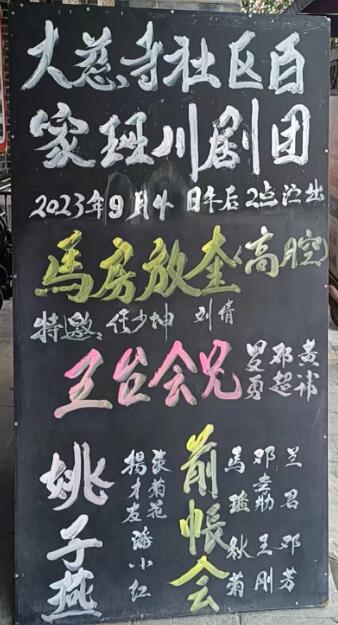 大慈寺社区百
家班川剧团
2023年9月4日午后2点演出
馬房放奎(高腔)
特邀:任少坤 刘倩
五台会兄
邓超
黄祎
姚子燕
菊花
杨才友
潘小红
前帳会
马瑶
邓
兰君
秋菊
王刚
邓芳